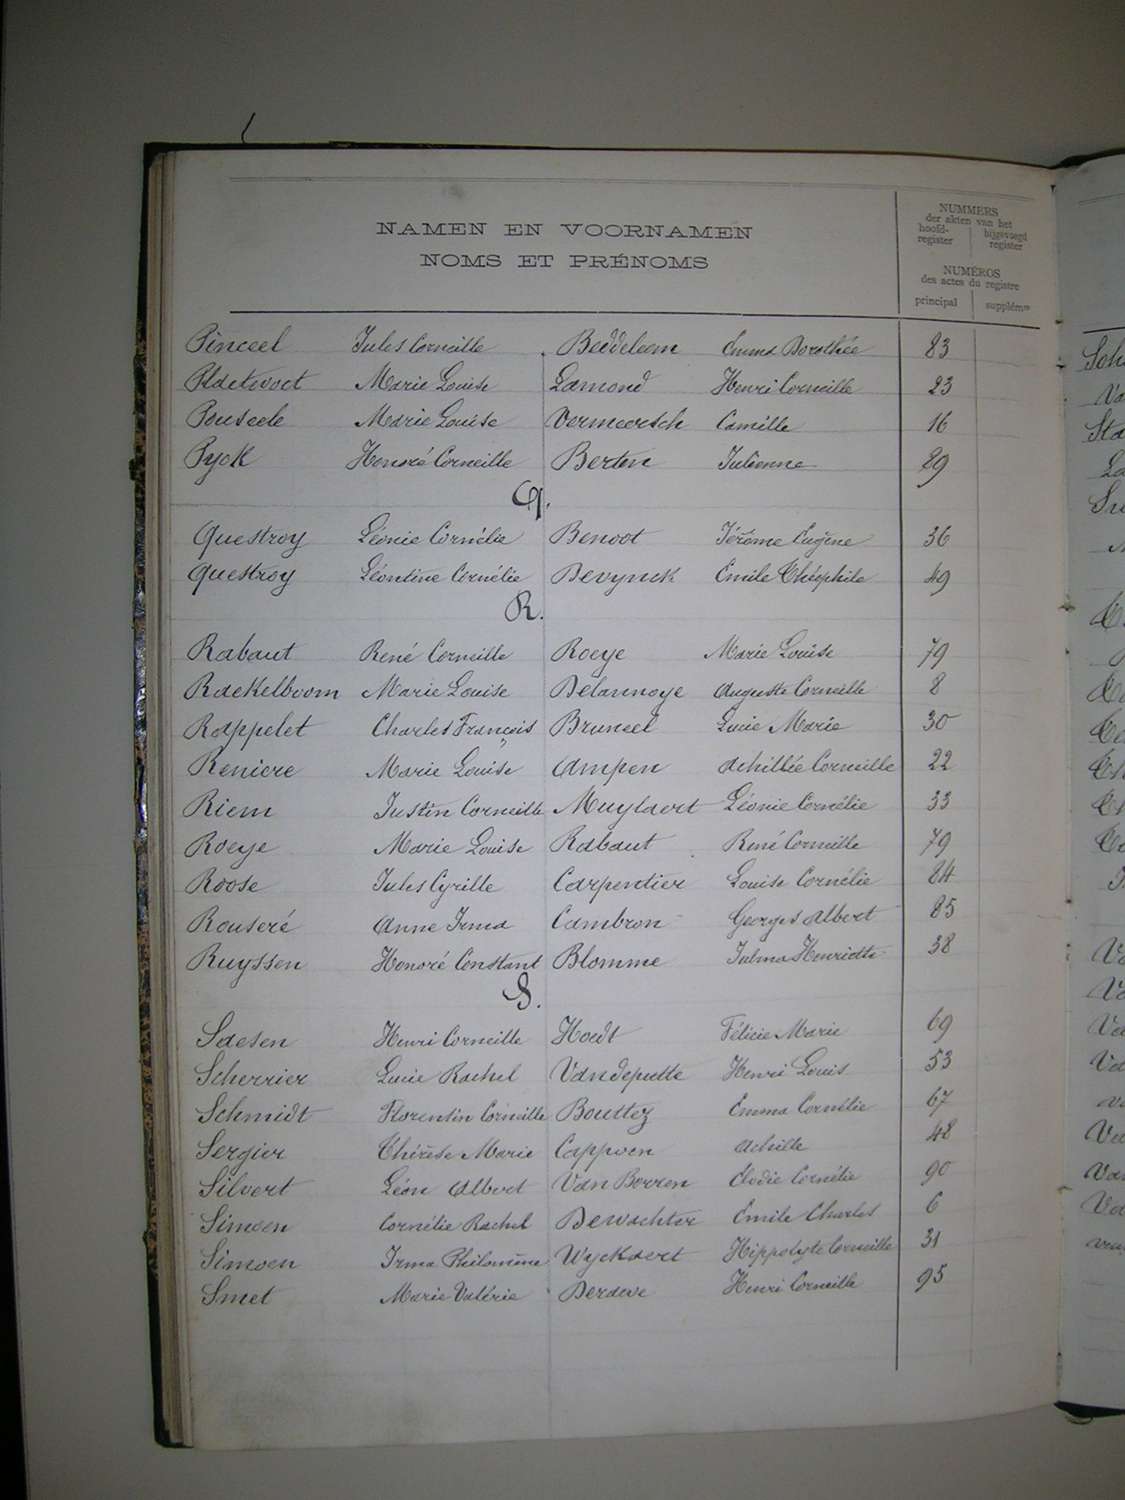 NAMEN EN VOORNAMEN
NOMS ET PRÉNOMS
NUMMERS
der akten van het
hoofd- register bijgevoegd register
NUMÉROS
des actes du registre
principal supplém.re
Pinceel Jules Corneille Beddeleem Emma Dorothée 83
Plaetevoet Marie Louise Lamond Henri Corneille 23
Pouseele Marie Louise Vermeersch Camille 16
Pyck Honoré Corneille Berten Julienne 89
Q.
Questroy Léonie Cornélie Benoot Jérôme Eugène 36
Questroy Léontine Cornélie Devynck Emile Théophile 49
R.
Rabaut René Corneille Roeye Marie Louise 79
Raekelboom Marie Louise Delannoye Auguste Corneille 8
Rappelet Charles François Bruneel Lucie Marie 30
Reniere Marie Louise Ampen Achille Corneille 22
Riem Justin Corneille Muylaert Léonie Cornélie 33
Roeye Marie Louise Rabaut René Corneille 79
Roose Jules Cyrille Carpentier Louise Cornélie 84
Rouseré Anne Irma Cambron Georges Albert 85
Ruyssen Honoré Constant Blomme Julma Henriette 38
S.
Saesen Henri Corneille Hoedt Félicie Marie 69
Scherrier Lucie Rachel Vandeputte Henri Louis 53
Schmidt Florentin Corneille Bouttez Emma Cornélie 67
Sergier Thérèse Marie Cappoen Achille 48
Silvert Léon Albert Van Borren Elodie Cornélie 90
Simoen Cornélie Rachel Dewachter Emile Charles 6
Simoen Irma Philomène Wyckaert Hippolyte Corneille 31
Smet Marie Valérie Deraeve Henri Corneille 95